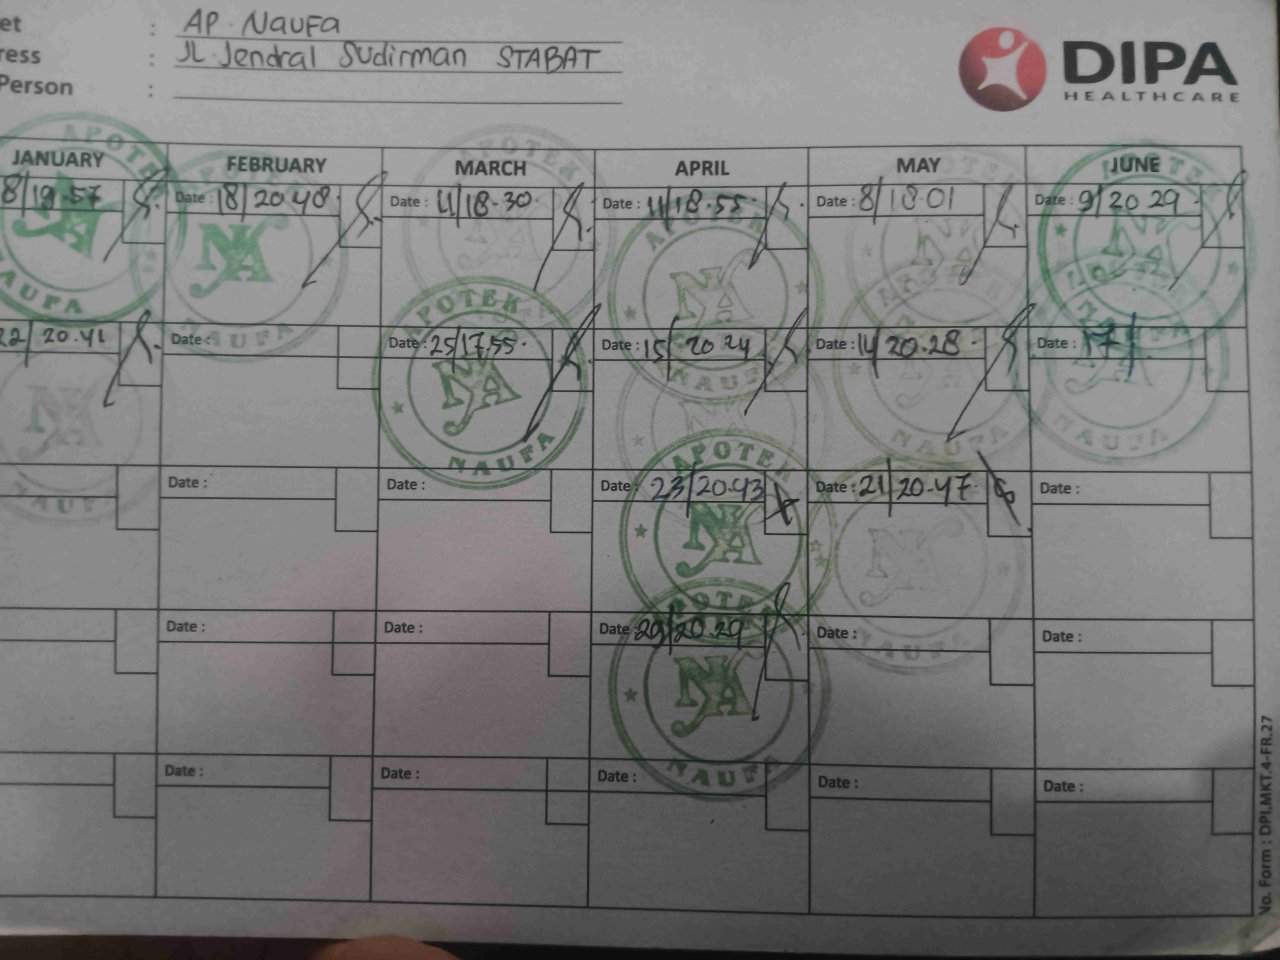 et : AP. Naufa
ress : JL. Jendral Sudirman STABAT
Person :
DIPA
HEALTHCARE
JANUARY FEBRUARY MARCH APRIL MAY JUNE
8/19.57 Date : 18/20.48. Date : 11/18-30. Date : 11/18.55. Date : 8/18.01 Date : 9/20 29.
22/20.41 Date : Date : 25/17.55. Date : 15/20 24 Date : 14/20.28. Date : 17/
Date : Date : Date : 23/20.43 Date : 21/20.47. Date :
Date : Date : Date : 29/20.29 Date : Date :
Date : Date : Date : Date : Date :
APOTEK
NAUFA
No. Form : DPI.MKT.4-FR.27